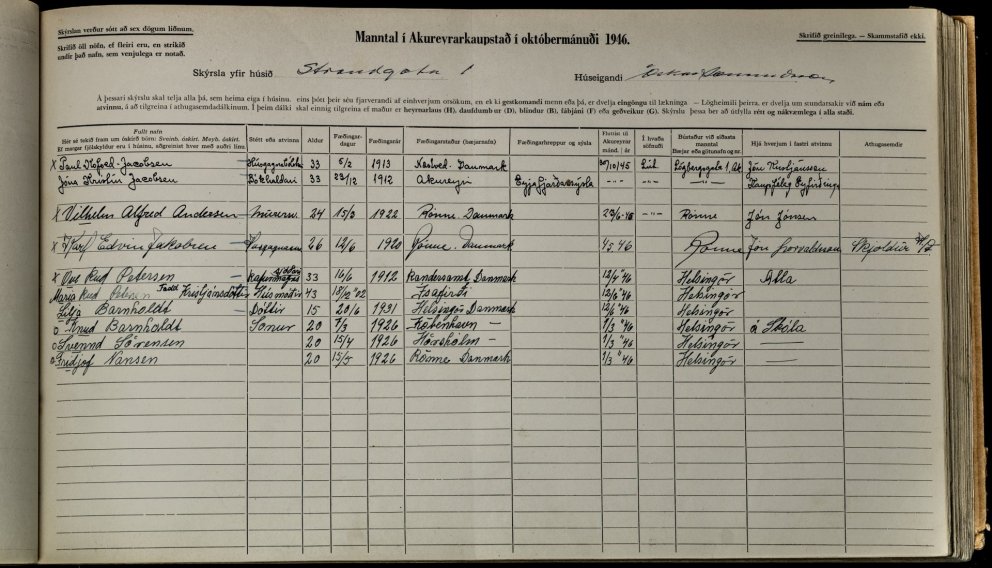 Skýrslan verður sótt að sex dögum liðnum.
Skrifið öll nöfn, ef fleiri eru, en strikið
undir það nafn, sem venjulega er notað.
Manntal í Akureyrarkaupstað í októbermánuði 1946.
Skrifið greinilega. — Skammstafið ekki.
Skýrsla yfir húsið Strandgata 1 Húseigandi
Á þessari skýrslu skal telja alla þá, sem heima eiga í húsinu, eins þótt þeir séu fjarverandi af einhverjum orsökum, en ekki gestkomandi menn eða þá, er dvelja eingöngu til lækninga — Lögheimili þeirra, er dvelja um stundarsakir við nám eða
atvinnu, á að tilgreina í athugasemdadálkinum. Í þeim dálki skal einnig tilgreina ef maður er heyrnarlaus (H), daufdumbur (D), blindur (B), fábjáni (F) eða geðveikur (G). Skýrslu þessa ber að útfylla rétt og nákvæmlega í alla staði.
Fullt nafn
Hér sé tekið fram um óskírð börn: Sveinb. óskírt. Meyb. óskírt.
Ef margar fjölskyldur eru í húsinu, aðgreinist hver með auðri línu.
Stétt eða atvinna
Aldur
Fæðingar-
dagur
Fæðingarár
Fæðingarstaður (bæjarnafn)
Fæðingarhreppur og sýsla
Fluttist til
Akureyrar
mánd. / ár
Í hvaða
söfnuði
Bústaður við síðasta
manntal
Bæjar eða götunafn og nr.
Hjá hverjum í fastri atvinnu
Athugasemdir
x Paul Hofoed-Jacobsen 33 6/2 1913 Næstved. Danmark 30/10 45 Lút. Jón Kristjánsson
Jóna Kristín Jacobsen Bókhaldari 33 22/12 1912 Akureyri Eyjafjarðarsýsla -"- -"- -"- Kaupfélag Eyfirðinga
x Vilhelm Alfred Andersen — 24 15/3 1922 Rønne. Danmark 29/6-46 -"- Rønne Jón Jónsson
x Edvin Jakobsen — 26 12/6 1920 Rønne. Danmark 4/5 46 Rønne Jón Þorvaldsson
x Ove Rud Petersen — 33 16/6 1912 Randersamt Danmark 12/6 "46 Helsingör Atla
María Rud Petersen Fædd Kristjánsdóttir Húsmóðir 43 "02 Ísafirði 12/6 "46 Helsingör
Lilja Barnholdt — Dóttir 15 20/6 1931 Helsingör Danmark 12/6 "46 Helsingör
o Knud Barnholdt — Sonur 20 7/3 1926 Köbenhavn — 1/3 "46 Helsingör á Skóla
o Svennd Sörensen 20 15/4 1926 Hörsholm — 1/3 "46 Helsingör —
o Fridjof Nansen 20 15/5 1926 Rönne Danmark 1/3 "46 Helsingör —